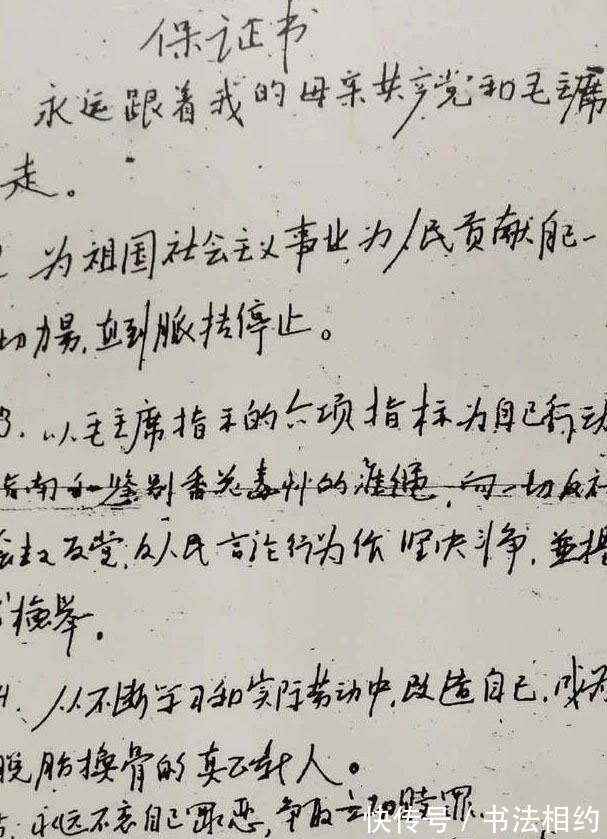 保证书
永远跟着我的母亲共产党和毛主席
走。
为祖国社会主义事业,为人民贡献自己一
切力量,直到脉搏停止。
3. 以毛主席指示的六项指标为自己行动
指南和鉴别香花毒草的准绳,向一切反社
会主义反党,反人民言论行为作坚决斗争,并
检举。
4. 从不断学习和实际劳动中,改造自己,成为
脱胎换骨的真正新人。
永远不忘自己罪恶,争取立功赎罪
快传号/书法相约